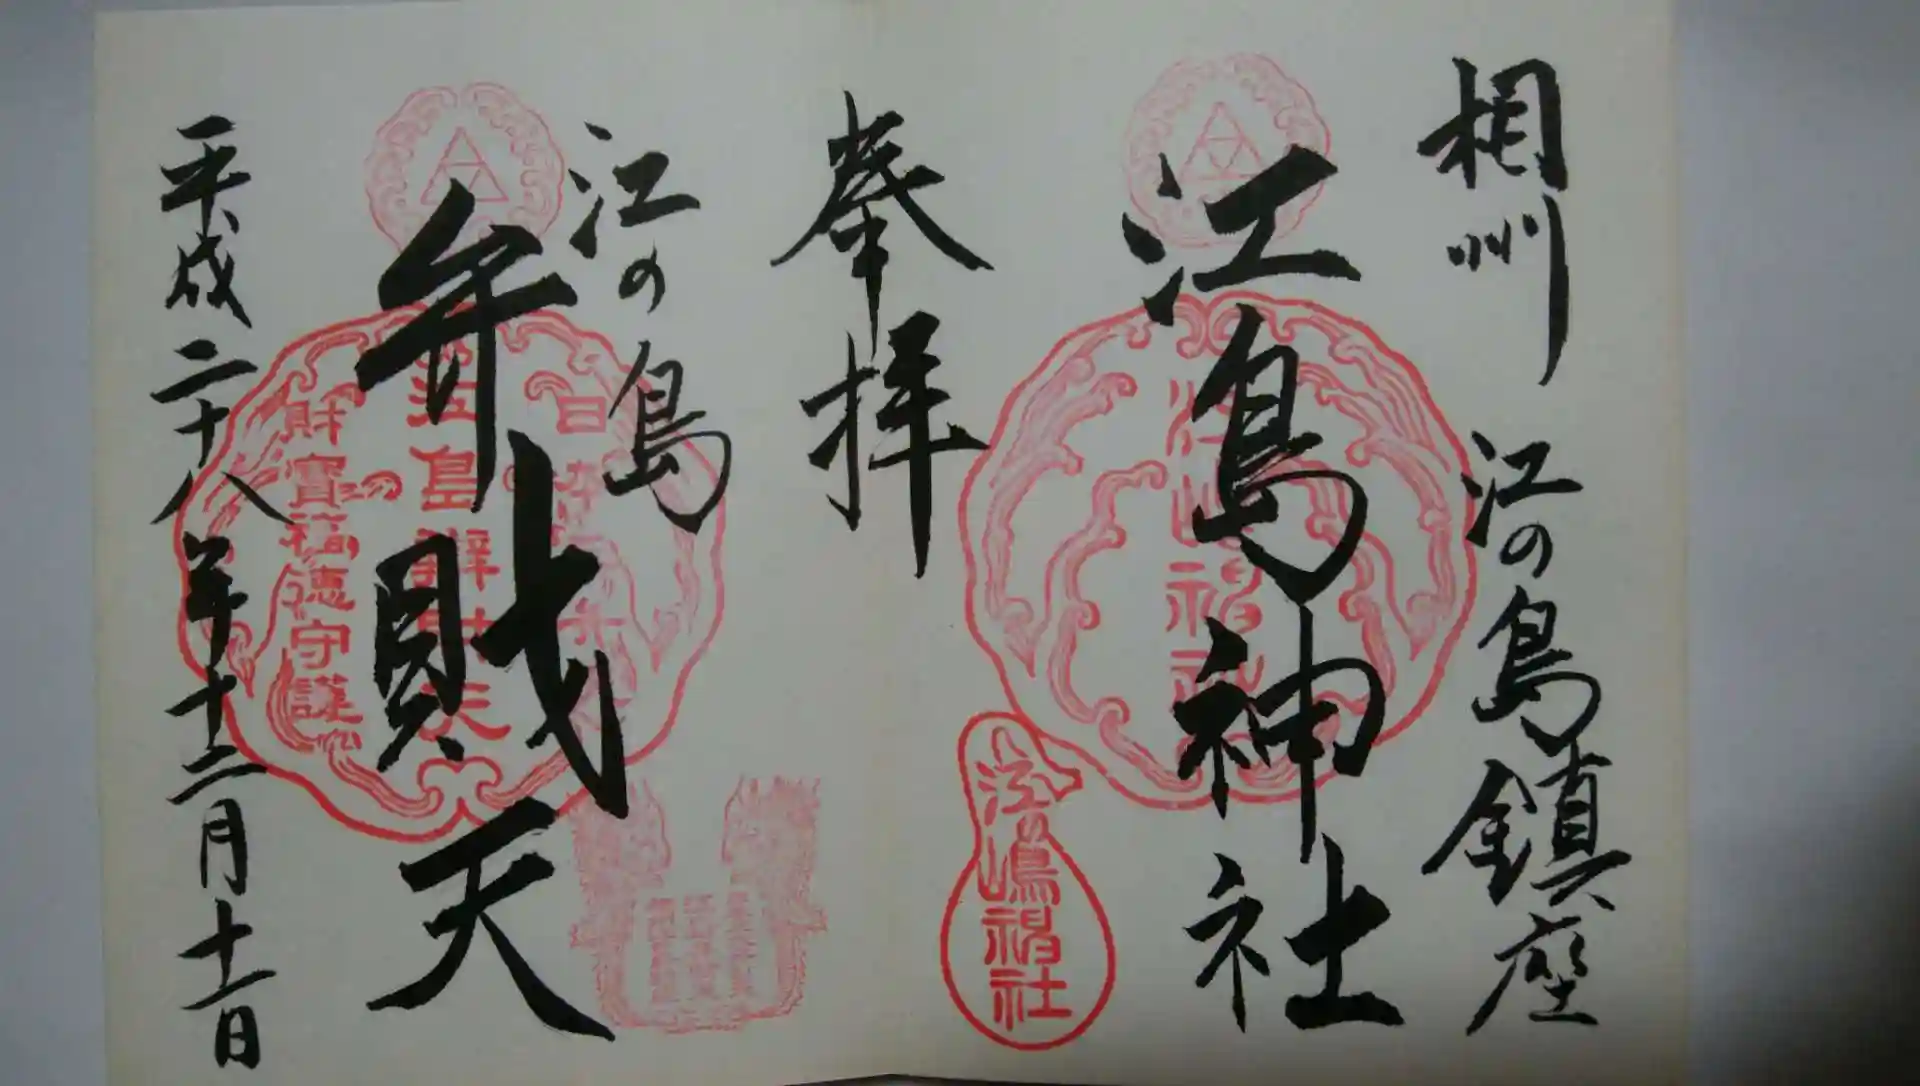 相州 江の島鎮座
江島神社
奉拝
江の島
弁財天
平成二十八年十二月十一日
江の嶋神社
財寶福徳守護